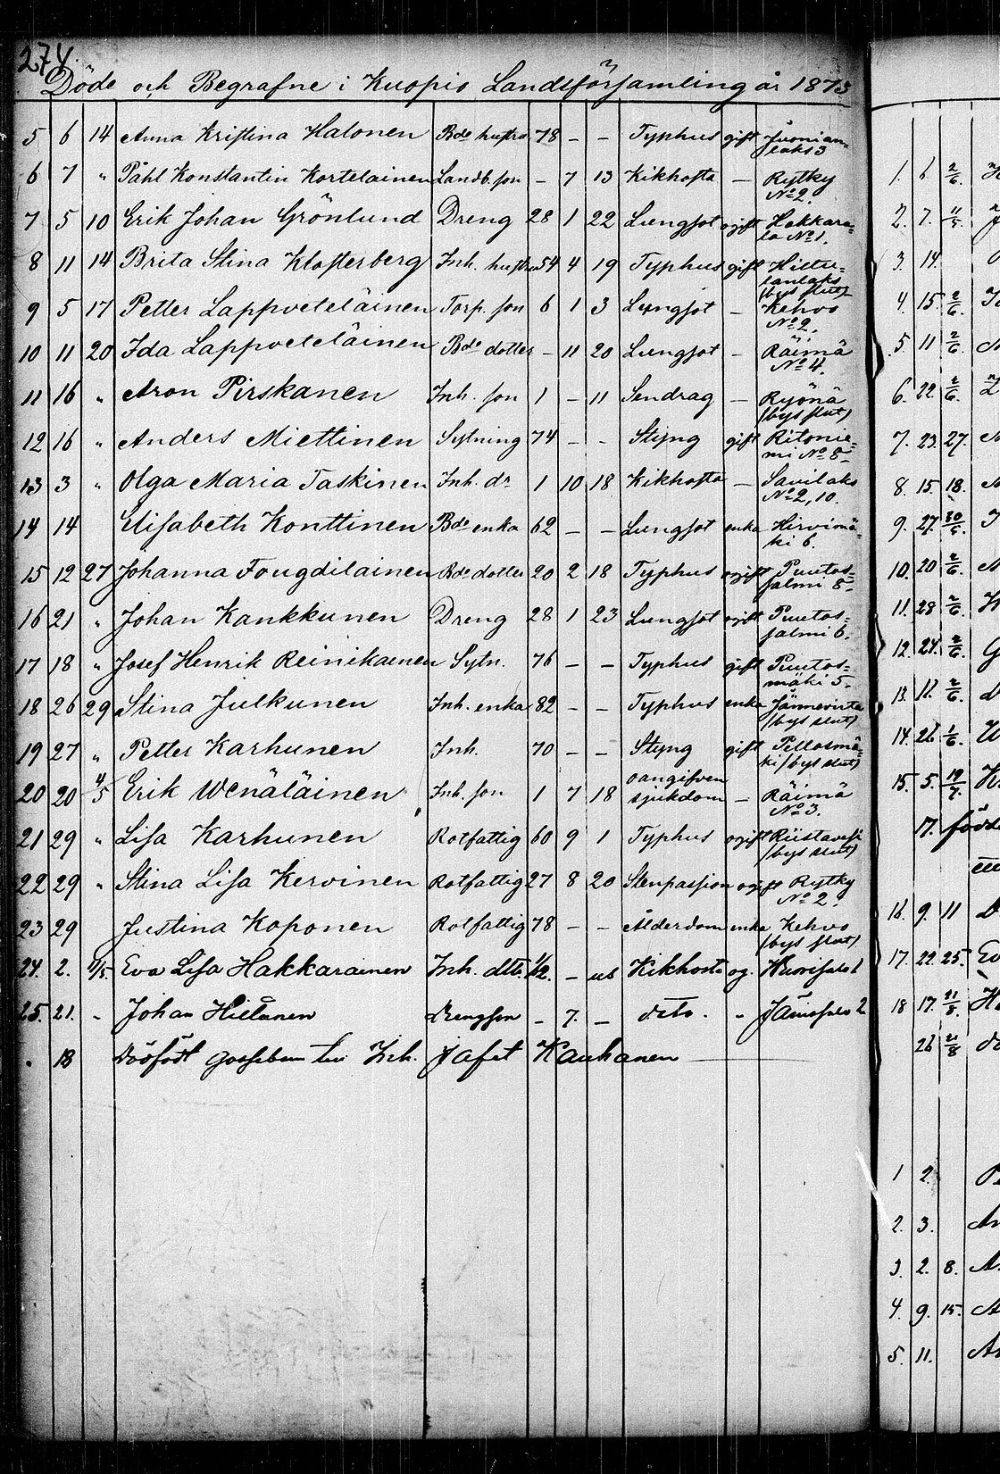 274.
Döde och Begrafne i Kuopio Landsförsamling år 1873
5 6 14 Anna Kristina Halonen Bde hustro 78 – – Typhus gift
laks 3
6 7 " Påhl Konstantin Kortelainen Landb. son – 7 13 Kikhosta – Rytky
No 2.
7 5 10 Erik Johan Grönlund Dreng 28 1 22 Lungsot ogift Hakkara=
la No 1.
8 11 14 Brita Stina Klosterberg Inh. hustru 54 4 19 Typhus gift Hiltu=
lanlaks
(bys slut)
9 5 17 Petter Lappveteläinen Torp. son 6 1 3 Lungsot – Kehvo
No 2.
10 11 20 Ida Lappveteläinen Bde dotter – 11 20 Lungsot – Räimä
No 4.
11 16 " Aron Pirskanen Inh. son 1 – 11 Sendrag – Ryönä
(bys slut)
12 16 " Anders Miettinen Sytning 74 – – Styng gift Ritonie=
mi No 8
13 3 " Olga Maria Taskinen Inh. dr 1 10 18 Kikhosta – Savilaks
No 2, 10.
14 14 Elisabeth Konttinen Bde enka 62 – – Lungsot enka Hirvimä=
ki 6.
15 12 27 Johanna Fougdilainen Bde dotter 20 2 18 Typhus ogift Puutos=
salmi 8
16 21 " Johan Kankkunen Dreng 28 1 23 Lungsot ogift Puutos=
salmi 6.
17 18 " Josef Henrik Reinikainen Sytn. 76 – – Typhus gift Puutos=
mäki 5
18 26 29 Stina Julkunen Inh. enka 82 – – Typhus enka Jännevirta
(bys slut)
19 27 " Petter Karhunen Inh. 70 – – Styng gift Pellosmä=
ki (bys slut)
20 20 4/5 Erik Wenäläinen Inh. son 1 7 18 oangifven
sjukdom – Räimä
No 3.
21 29 " Lisa Karhunen Rotfattig 60 9 1 Typhus ogift Riistavesi
(bys slut)
22 29 " Stina Lisa Kervinen Rotfattig 27 8 20 Stenpassion ogift Rytky
No 2.
23 29 Justina Koponen Rotfattig 78 – – Ålderdom enka Kehvo
(bys slut)
24. 2. Eva Lisa Hakkarainen Inh. dttr 1/12. – Kikhosta og.
25. 21. " Johan Hiltunen Drengson – 7. – dito. "
18 Dödfödt gossebarn till Inh. Jafet Kauhanen
1. 6 2/6.
2. 7.
3. 14.
4. 15. 2/6.
5 11 2/6.
6. 22. 2/6.
7. 23. 27.
8. 15. 18.
9. 27. 30/5.
10. 20 2/6.
11. 28 2/6.
12. 24. 2/6.
13. 2/6.
14. 26 1/6.
15. 5.
17. födde
16. 9. 11
17. 22. 25.
18 17.
26
1 2.
2. 3.
3. 2. 8.
4. 9. 15.
5. 11.